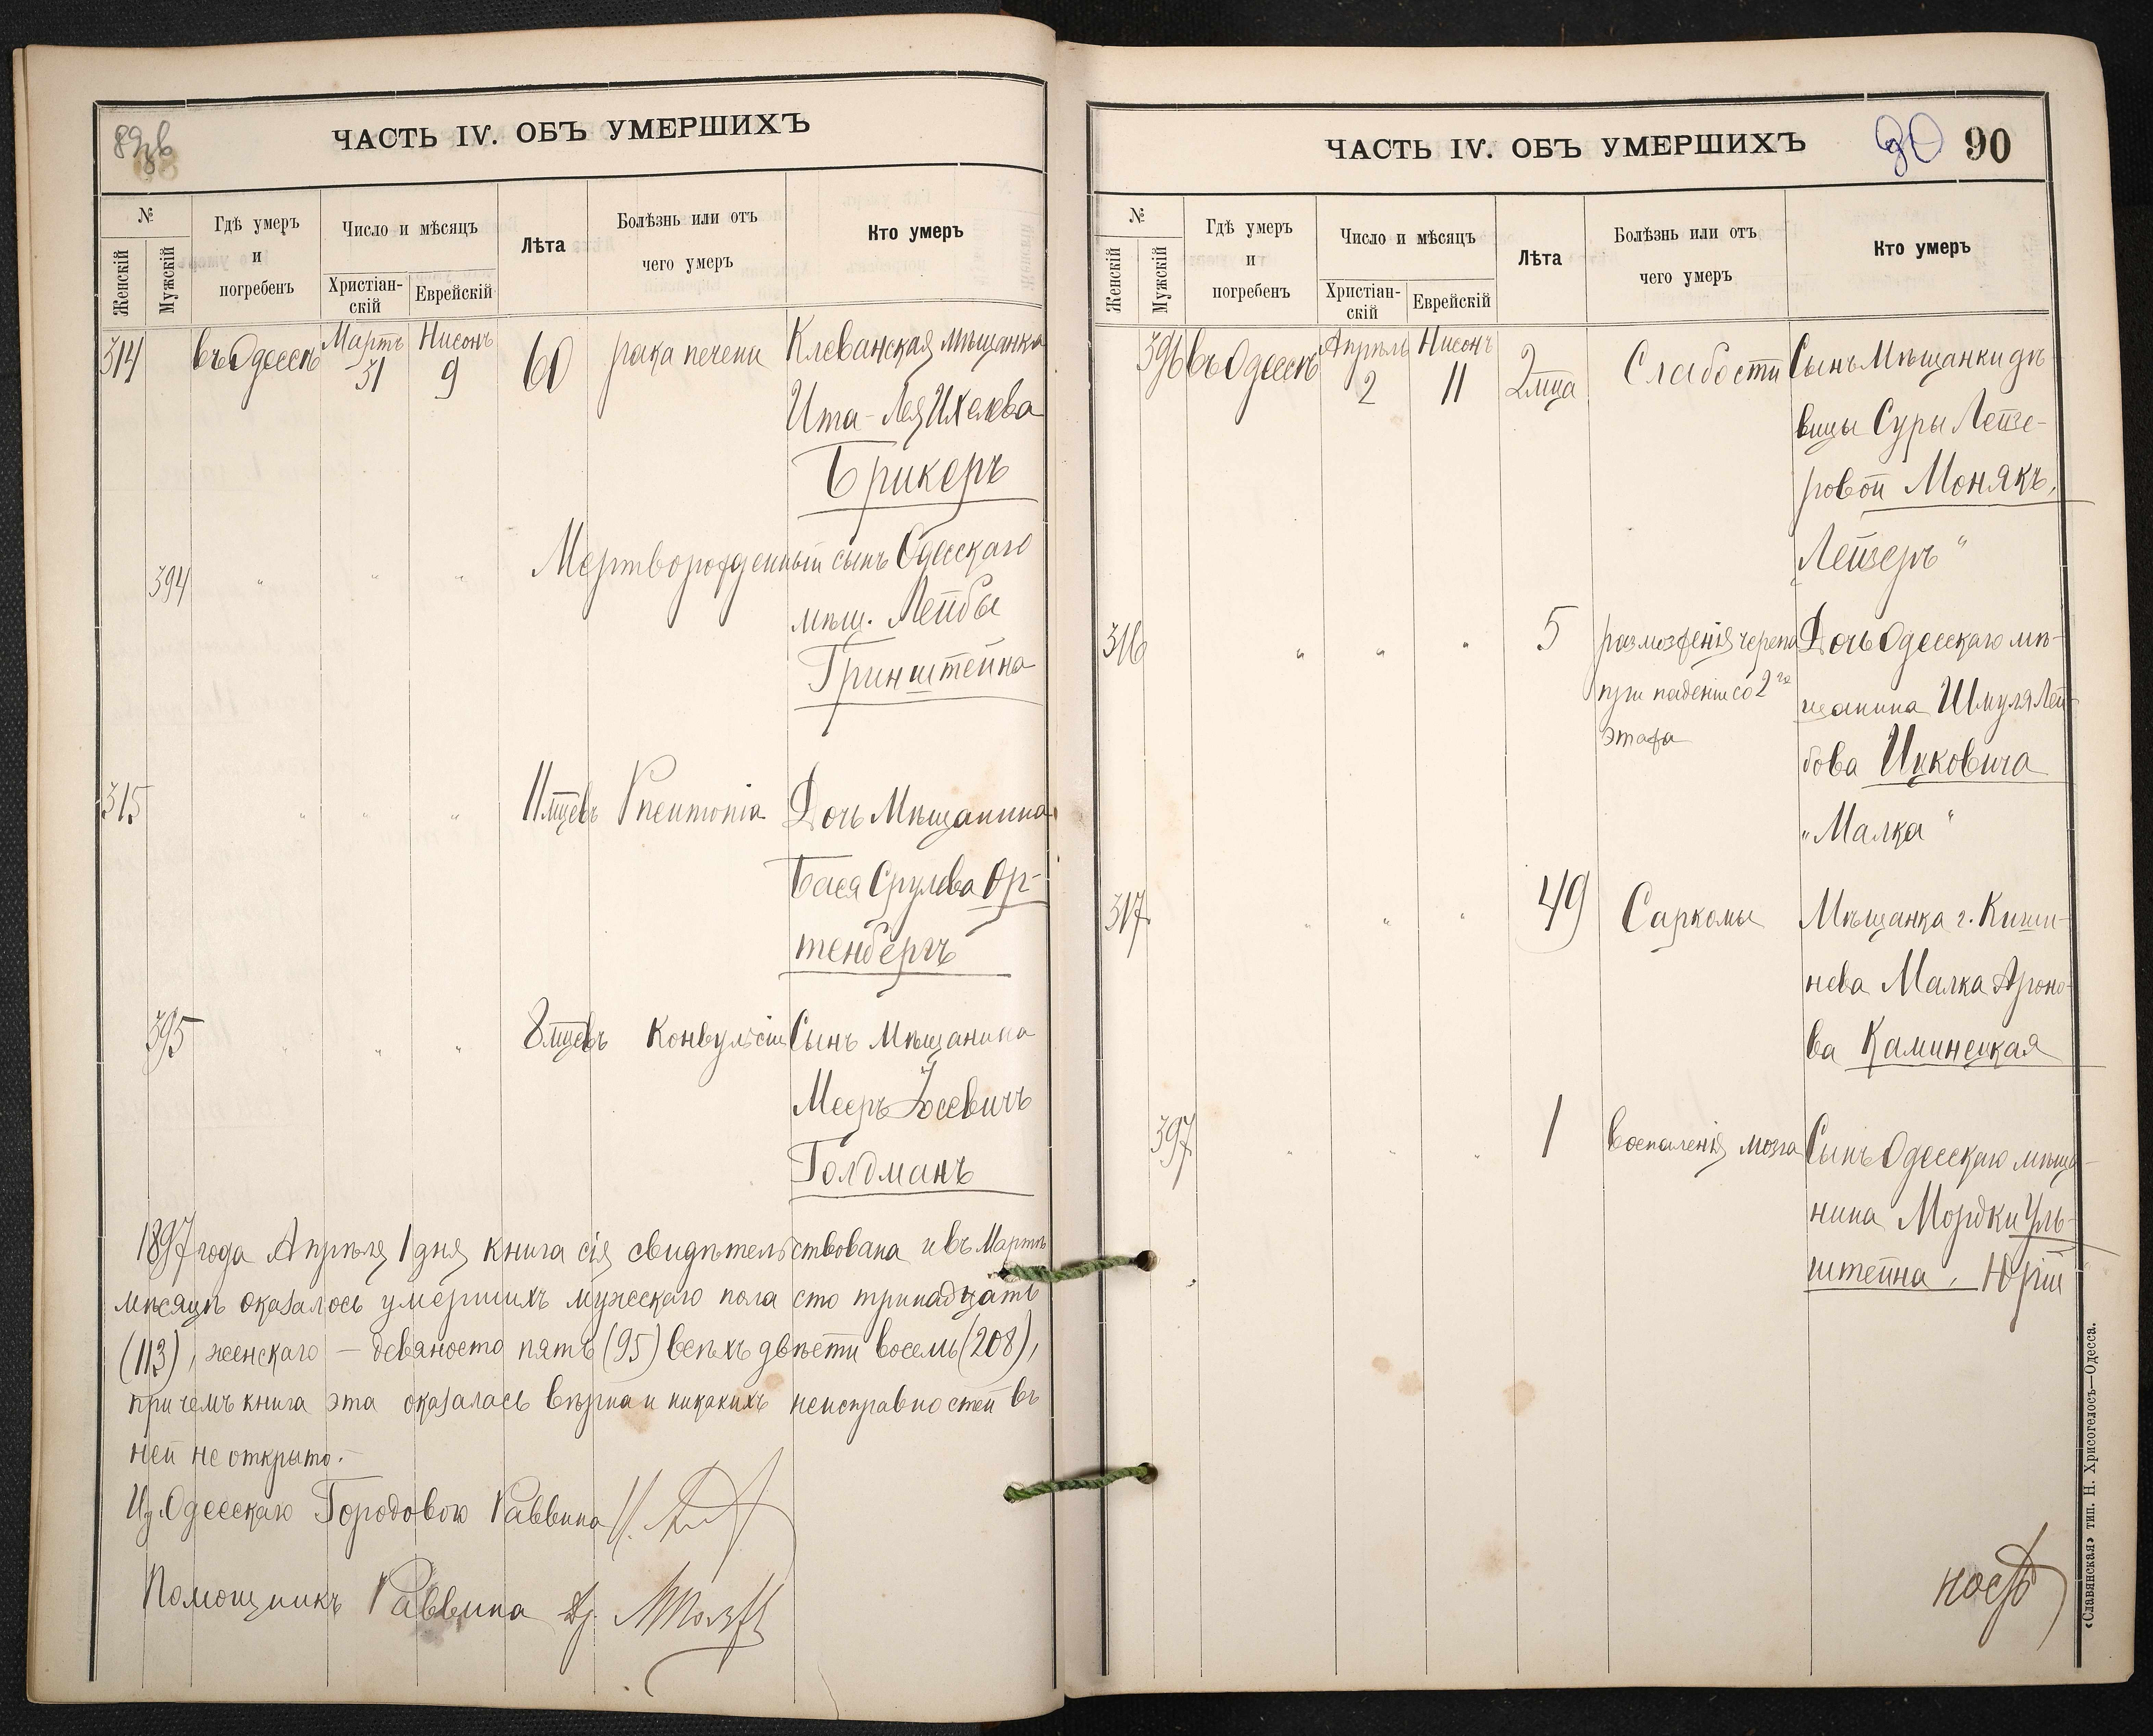 89зв
ЧАСТЬ IV. ОБЪ УМЕРШИХЪ
№
Женскій
Мужскій
Гдѣ умеръ
и
погребенъ
Число и мѣсяцъ
Христіан-
скій
Еврейскій
Лѣта
Болѣзнь или отъ
чего умеръ
Кто умеръ
314 въ Одессѣ Мартъ 31 Нисонъ 9 60 рака печени Клеванская мѣщанка
Ита-Лея Ихелева
Брикеръ
394 " " " Мертворожденный сынъ Одесскаго
мѣщ. Лейбы
Гринштейна
315 " " " 11 мцевъ Pneumonia Дочь Мѣщанина
Бася Срулева Ор-
тенбергъ
395 " " " 8 мцевъ Конвульсіи Сынъ Мѣщанина
Мееръ Іосевичъ
Голдманъ
1897 года Апрѣля 1 дня книга сія свидѣтельствована и въ Мартѣ
мѣсяцѣ оказалось умершихъ мужескаго пола сто тринадцать
(113), женскаго — девяносто пять (95) всѣхъ двѣсти восемь (208),
при чемъ книга эта оказалась вѣрна и никакихъ неисправностей въ
ней не открыто.-
И д. Одесскаго Городового Раввина
Помощникъ Раввина
ЧАСТЬ IV. ОБЪ УМЕРШИХЪ
90 90
№
Женскій
Мужскій
Гдѣ умеръ
и
погребенъ
Число и мѣсяцъ
Христіан-
скій
Еврейскій
Лѣта
Болѣзнь или отъ
чего умеръ
Кто умеръ
396 въ Одессѣ Апрѣль 2 Нисонъ 11 2 2 мца Слабости Сынъ Мѣщанки дѣ-
вицы Суры Лейзе-
ровой Монякъ,
Лейзеръ"
316 " " " 5 размозженія черепа Дочь Одесскаго мѣ-
при паденіи со 2го щанина Шмуля Лей-
этажа
бова Ицковича
"Малка"
317 " " " 49 Саркомы Мѣщанка г. Киши-
нева Малка Ароно-
ва Каминецкая
397 " " " 1 воспаленія мозга Сынъ Одесскаго мѣща-
нина Мордки Уль-
штейна, Юрій
«Славянская» тип. Н. Хрисогелосъ—Одесса.